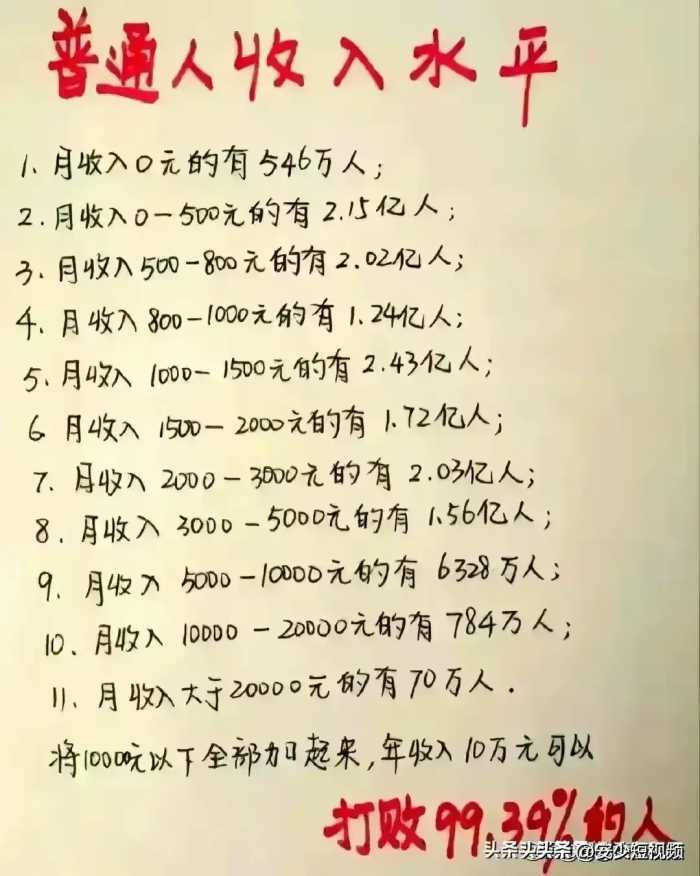 普通人收入水平
1、月收入0元的有546万人;
2.月收入0-500元的有2.15亿人;
3、月收入500-800元的有2.02亿人;
4、月收入800-1000元的有1.24亿人;
5、月收入1000-1500元的有2.43亿人;
6月收入1500-2000元的有1.72亿人;
7.月收入2000-3000元的有2.03亿人;
8.月收入3000-5000元的有1.56亿人;
9.月收入5000-10000元的有6328万人;
10、月收入10000-20000元的有784万人;
11、月收入大于20000元的有70万人.
将10000元以下全部加起来,年收入10万元可以
打败99.39%的人
头条@安少短视频